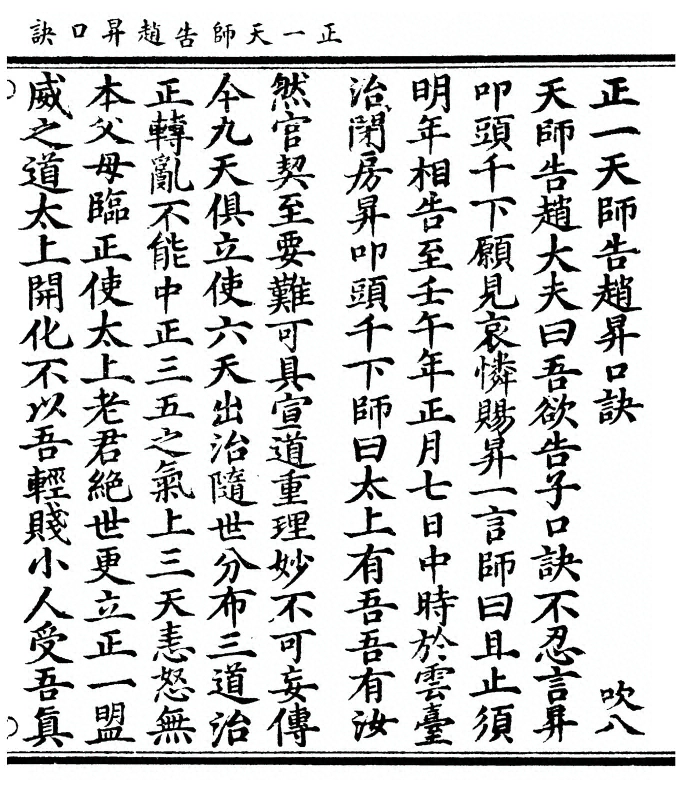 正一天師告趙昇口訣
正一天師告趙昇口訣 吹八
天師告趙大夫曰吾欲告子口訣不忍言昇
叩頭千下願見哀憐賜昇一言師曰且止須
明年相告至壬午年正月七日中時於雲臺
治閉房昇叩頭千下師曰太上有吾吾有汝
然官契至要難可具宣道重理妙不可妄傳
今九天俱立使六天出治隨世分布三道治
正轉亂不能中正三五之氣上三天恚怒無
本父母臨正使太上老君絶世更立正一盟
威之道太上開化不以吾輕賤小人受吾真